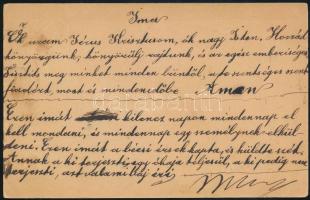 Ima
Ó uram Jézus Krisztusom, ók nagy Isten, Hozzád
könyörgünk; könyörülj rajtunk, és az egész emberiségen
Tisztíts meg minket minden bűntől, a te szentséges szent
most és mindenidőbe Amen
Ezen imát kilencz napon mindennap el
kell mondani, és mindennap egy személynek elkül-
deni. Ezen imát a bécsi érsek kapta, és küldte szét.
Annak a ki terjeszti egy óhaja teljesül, a ki pedig nem
terjeszti, azt valami baj éri,